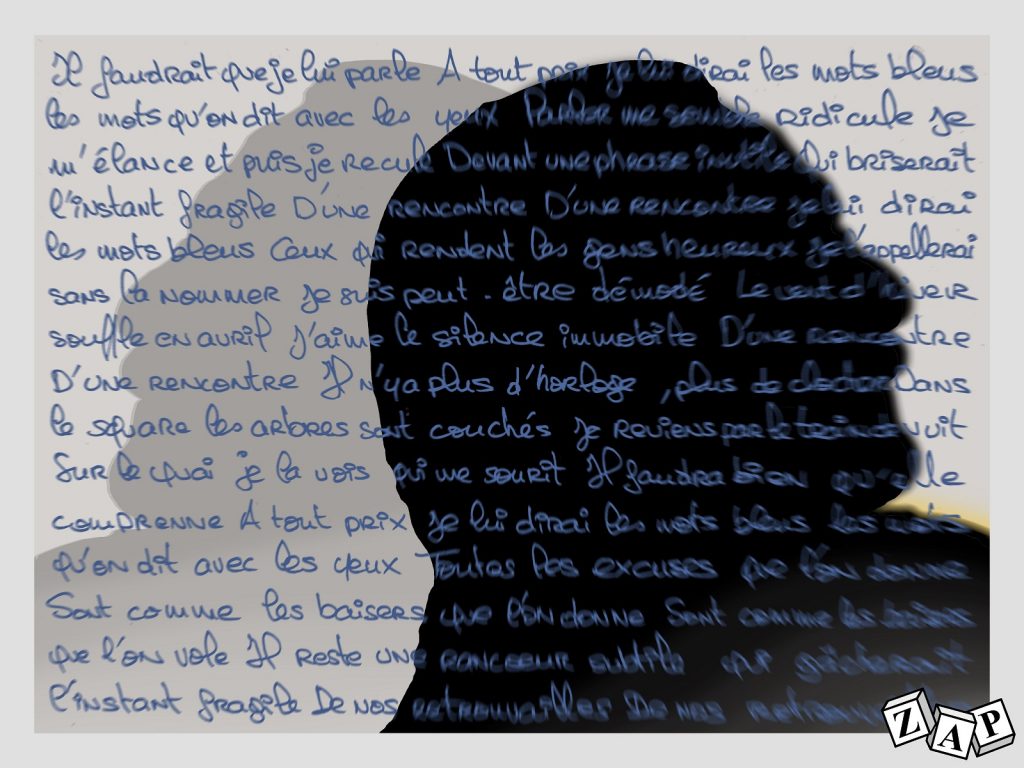 Il faudrait que je lui parle A tout prix je lui dirai les mots bleus
les mots qu'on dit avec les yeux Parler me semble ridicule je
m'élance et puis je recule Devant une phrase inutile Qui briserait
l'instant fragile D'une rencontre D'une rencontre je lui dirai
les mots bleus Ceux qui rendent les gens heureux je l'appellerai
sans la nommer je suis peut-être démodé Le vent d'hiver
souffle en avril J'aime le silence immobile D'une rencontre
D'une rencontre Il n'y a plus d'horloge, plus de clocher Dans
le square les arbres sont couchés je reviens par le train de nuit
Sur le quai je la vois qui me sourit Il faudra bien qu'elle
comprenne A tout prix je lui dirai les mots bleus les mots
qu'on dit avec les yeux Toutes les excuses que l'on donne
Sont comme les baisers que l'on donne Sont comme les baisers
que l'on vole Il reste une rancoeur subtile qui gâcherait
l'instant fragile De nos retrouvailles De nos
ZAP